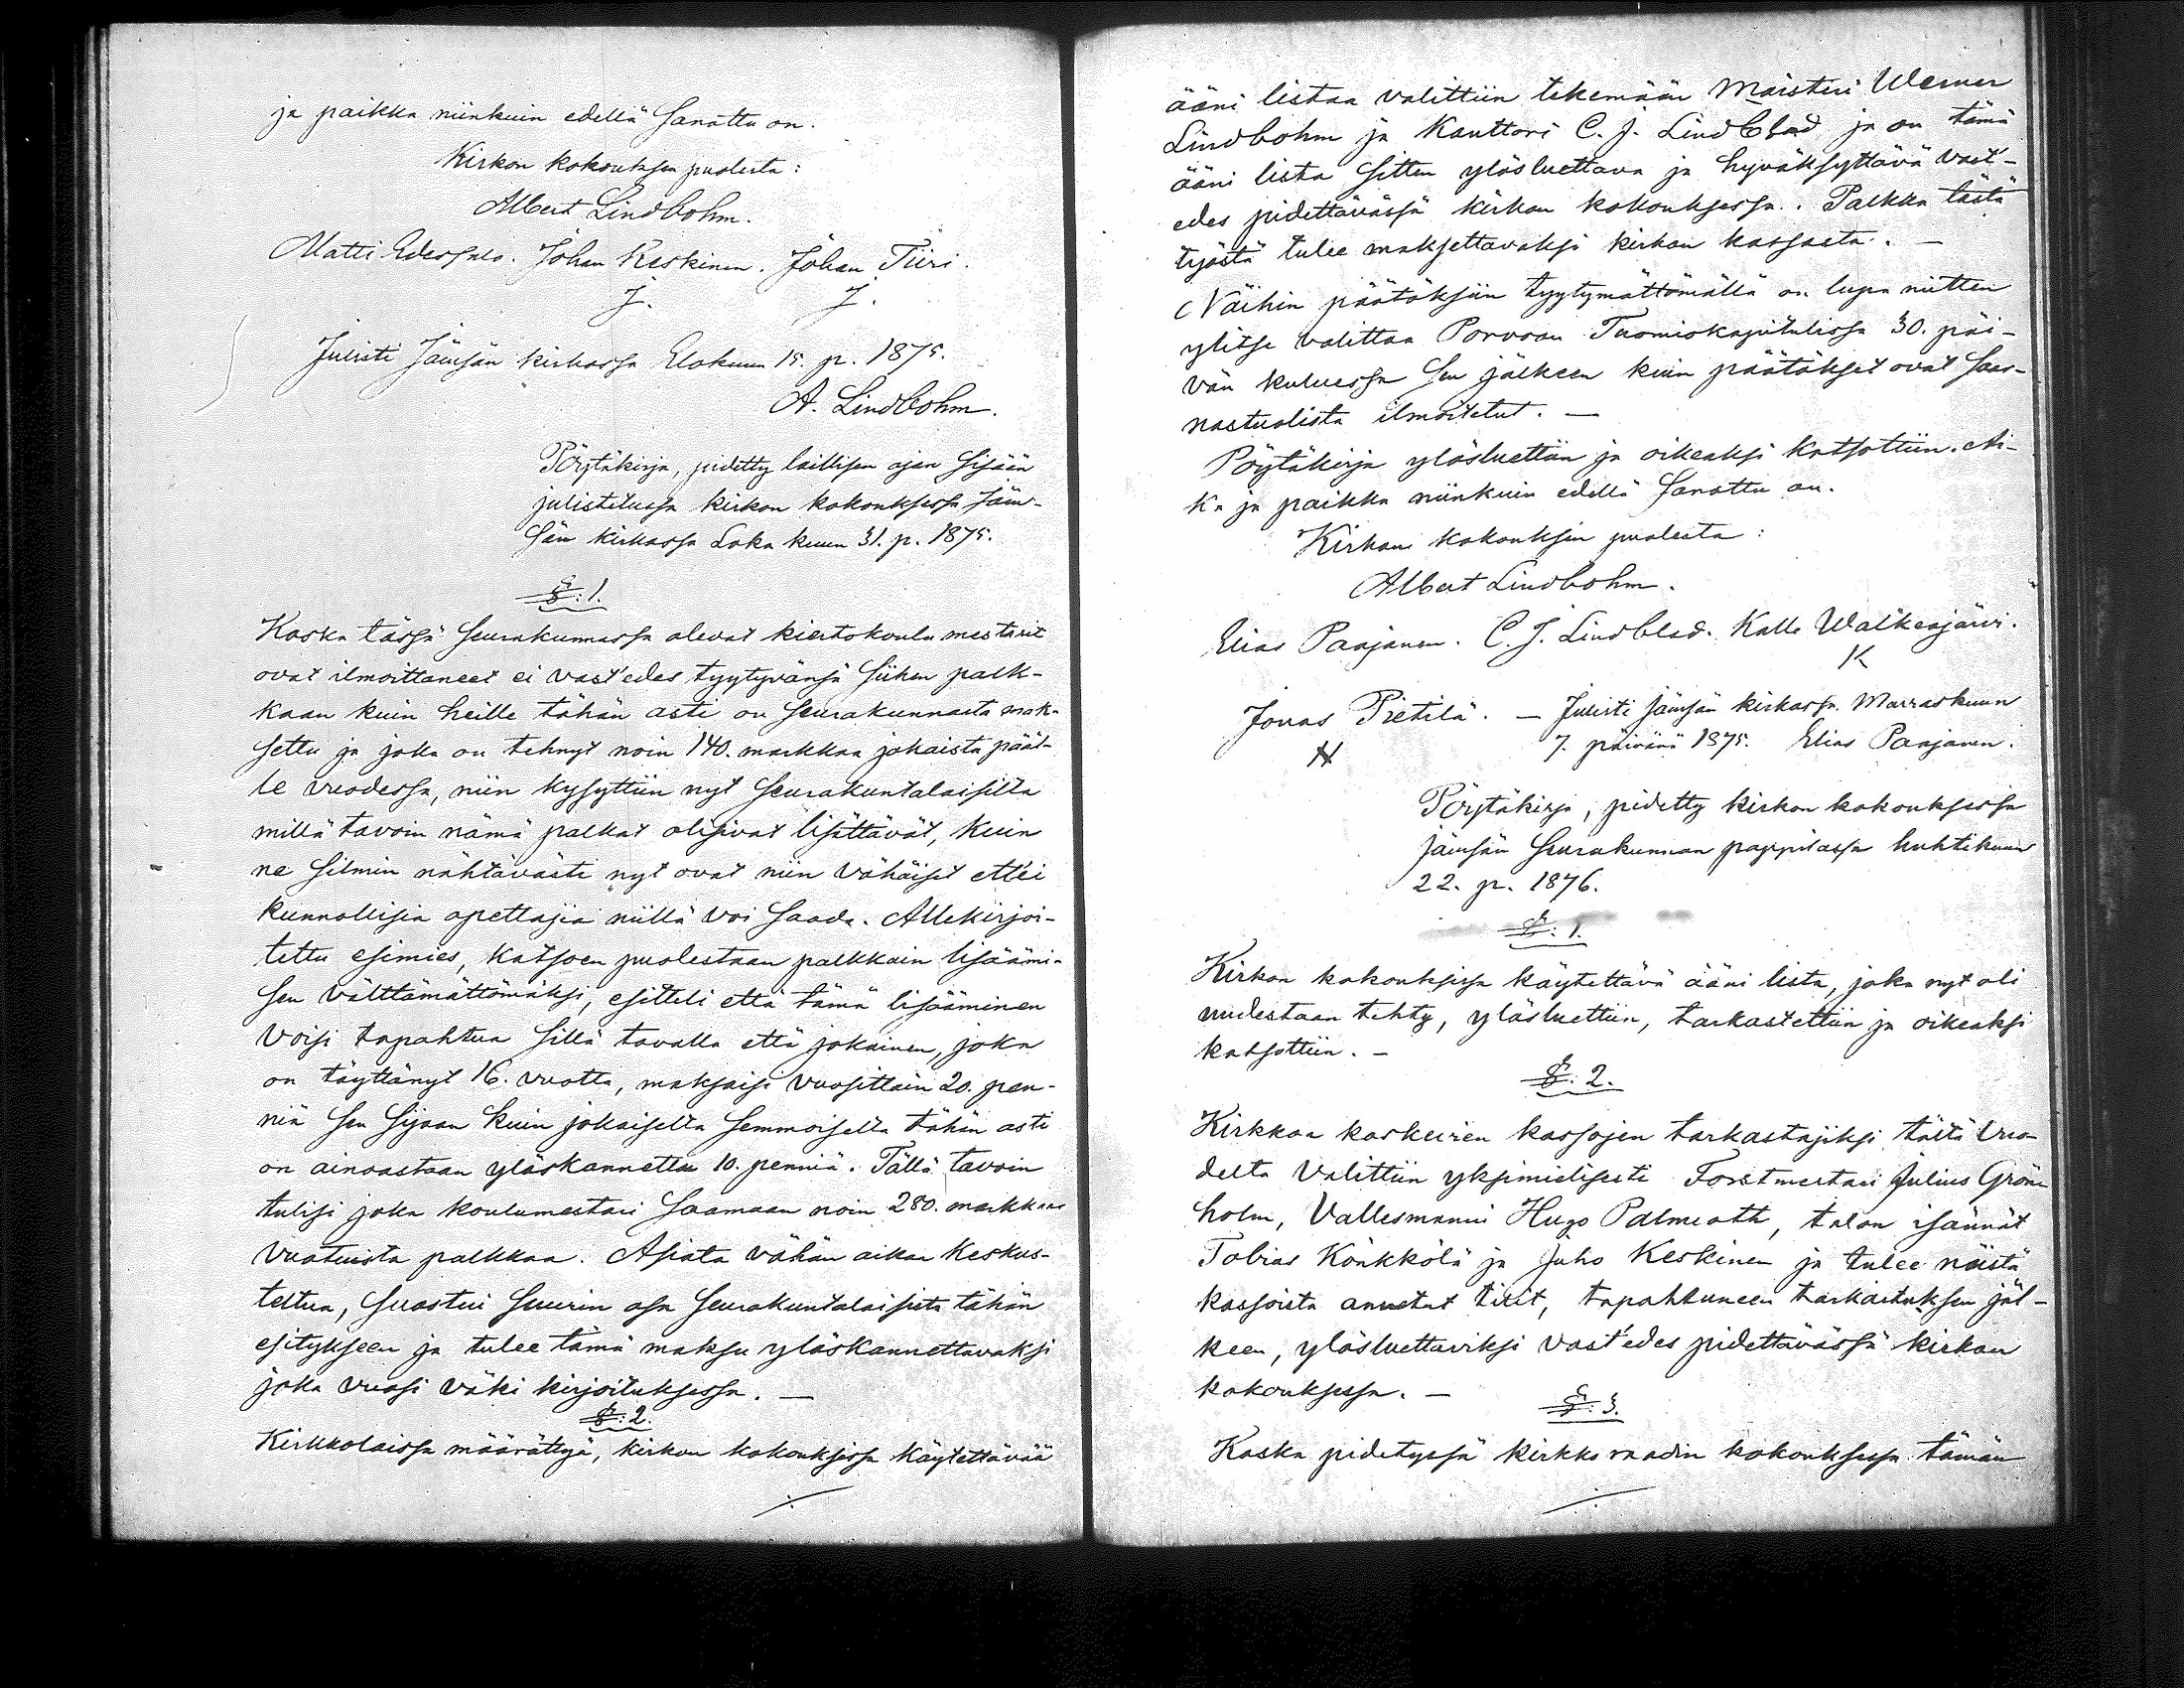 ja paikka niinkuin edellä sanottu on.
Kirkon kokouksen puolesta:
Albert Lindbohm.
Matti Edessalo. Johan Keskinen. Johan Tiiri.
J. J.
Julisti Jämsän kirkossa Elokuun 15. p. 1875.
A. Lindbohm.
Pöytäkirja, pidetty laillisen ajan sisään
julistetussa kirkon kokouksessa Jäm-
sän kirkossa Loka kuun 31. p. 1875.
§: 1.
Koska tässä seurakunnassa olevat kiertokoulu mestarit
ovat ilmoittaneet ei vast'edes tyytyvänsä siihen palk-
kaan kuin heille tähän asti on seurakunnasta mak-
settu ja joka on tehnyt noin 140. markkaa jokaista pääl-
le vuodessa, niin kysyttiin nyt seurakuntalaisilta
millä tavoin nämä palkat olisivat lisättävät, kuin
ne silmin nähtävästi nyt ovat niin vähäiset ettei
kunnollisia opettajia niillä voi saada. Allekirjoi-
tettu esimies, katsoen puolestaan palkkain lisäämi-
sen välttämättömäksi, esitteli että tämä lisääminen
voisi tapahtua sillä tavalla että jokainen, joka
on täyttänyt 16. vuotta, maksaisi vuosittain 20. pen-
niä sen sijaan kuin jokaiselta semmoiselta tähän asti
on ainoastaan yläskannettu 10. penniä. Tällä tavoin
tulisi joka koulumestari saamaan noin 280. markkaa
vuotuista palkkaa. Asiata vähän aikaa keskus-
teltua, suostui suurin osa seurakuntalaisista tähän
esitykseen ja tulee tämä maksu yläskannettavaksi
joka vuosi väki kirjoituksessa. —
§: 2.
Kirkkolaissa määrättyä, kirkon kokouksissa käytettävää
ääni listaa valittiin tekemään Maisteri Werner
Lindbohm ja Kanttori C. J. Lindblad ja on tämä
ääni lista sitten ylösluettava ja hyväksyttävä vast'-
edes pidettävässä kirkon kokouksessa. Palkka tästä
työstä tulee maksettavaksi kirkon kassasta. —
Näihin päätöksiin tyytymättömällä on lupa niitten
ylitse valittaa Porvoon Tuomiokapitulissa 30. päi-
vän kuluessa sen jälkeen kuin päätökset ovat saar-
nastuolista ilmoitetut. —
Pöytäkirja ylösluettiin ja oikeaksi katsottiin. Ai-
ka ja paikka niinkuin edellä sanottu on.
Kirkon kokouksen puolesta:
Albert Lindbohm.
Elias Paajanen. C. J. Lindblad. Kalle Walkeajärvi.
K
Jonas Pietilä. — Julisti Jämsän kirkossa Marraskuun
7. päivänä 1875. Elias Paajanen.
Pöytäkirja, pidetty kirkon kokouksessa
Jämsän seurakunnan pappilassa huhtikuun
22. p. 1876.
§: 1.
Kirkon kokouksissa käytettävä ääni lista, joka nyt oli
uudestaan tehty, ylösluettiin, tarkastettiin ja oikeaksi
katsottiin. —
§: 2.
Kirkkoa koskevien kassojen tarkastajiksi tältä vuo-
delta valittiin yksimielisesti Forstmestari Julius Grön-
holm, Vallesmanni Hugo Palmroth, talon isännät
Tobias Könkkölä ja Juho Keskinen ja tulee näistä
kassoista annetut tilit, tapahtuneen tarkastuksen jäl-
keen, ylösluettaviksi vast'edes pidettävässä kirkon
kokouksessa. —
§: 3.
Koska pidetyssä kirkko raadin kokouksessa tämän